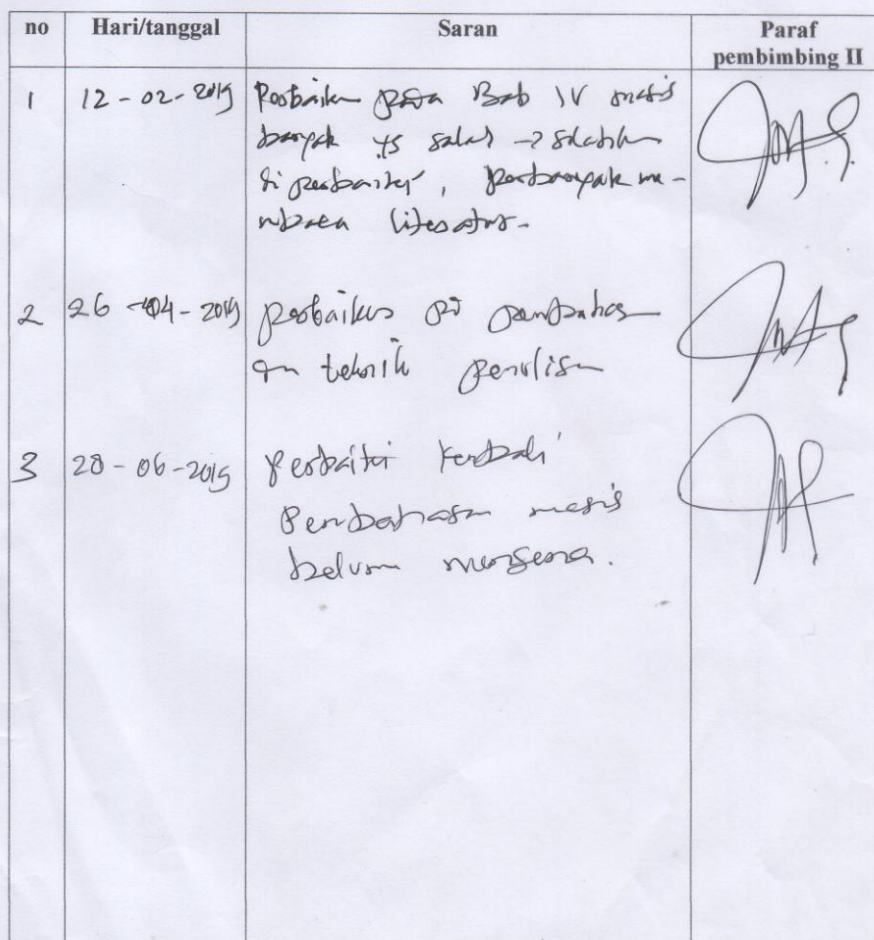 no Hari/tanggal Saran Paraf
pembimbing II
1 12-02-2019 Perbaikan pada Bab IV masih
banyak yg salah -> silahkan
di perbaiki, perbanyak me-
mbaca literatur-
2 26-04-2019 perbaikan pd pembahasan
dan teknik penulisan
3 28-06-2019 Perbaiki kembali
Pembahasan masih
belum mengena.